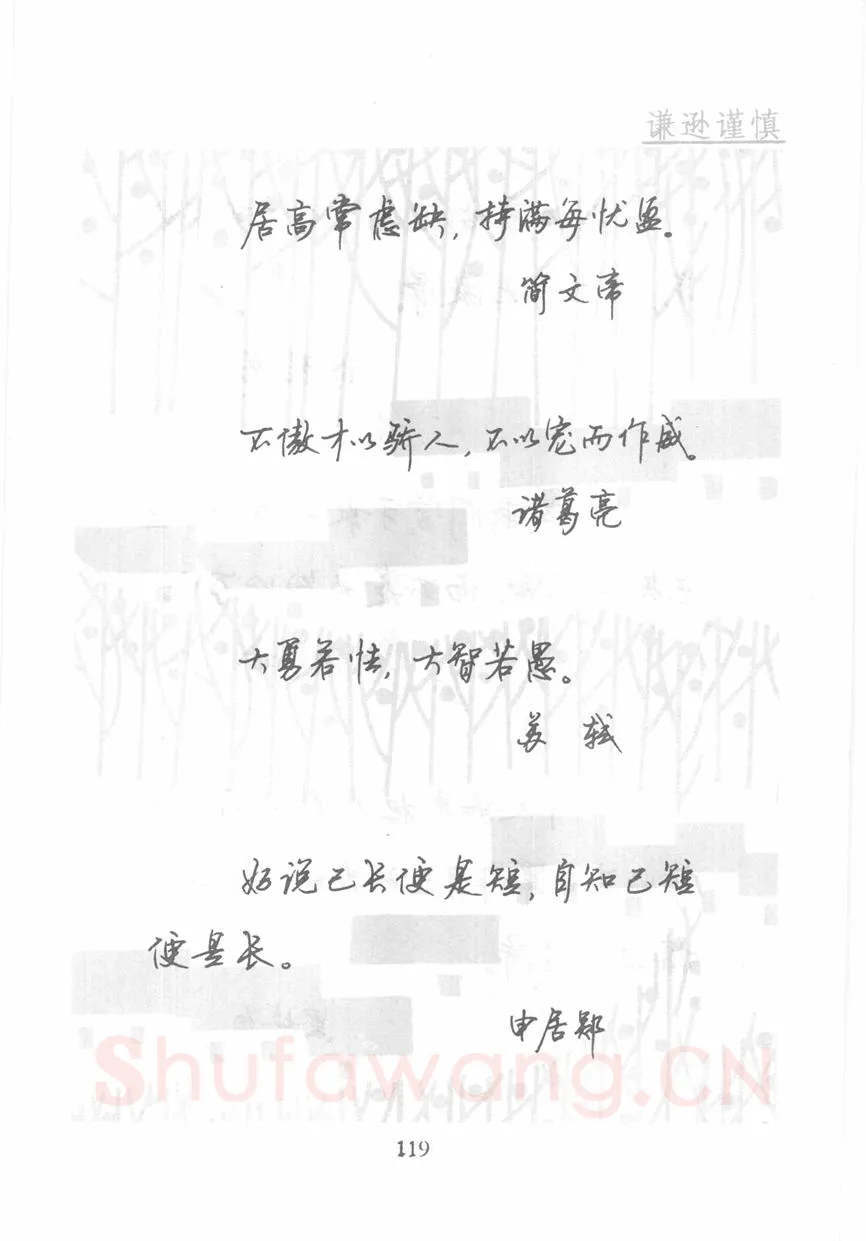 谦逊谨慎
居高常虑缺，持满每忧盈。
简文帝
不傲才以骄人，不以宠而作威。
诸葛亮
大勇若怯，大智若愚。
苏 轼
好说己长便是短，自知己短
便是长。
申居郧
Shufawang.CN
119